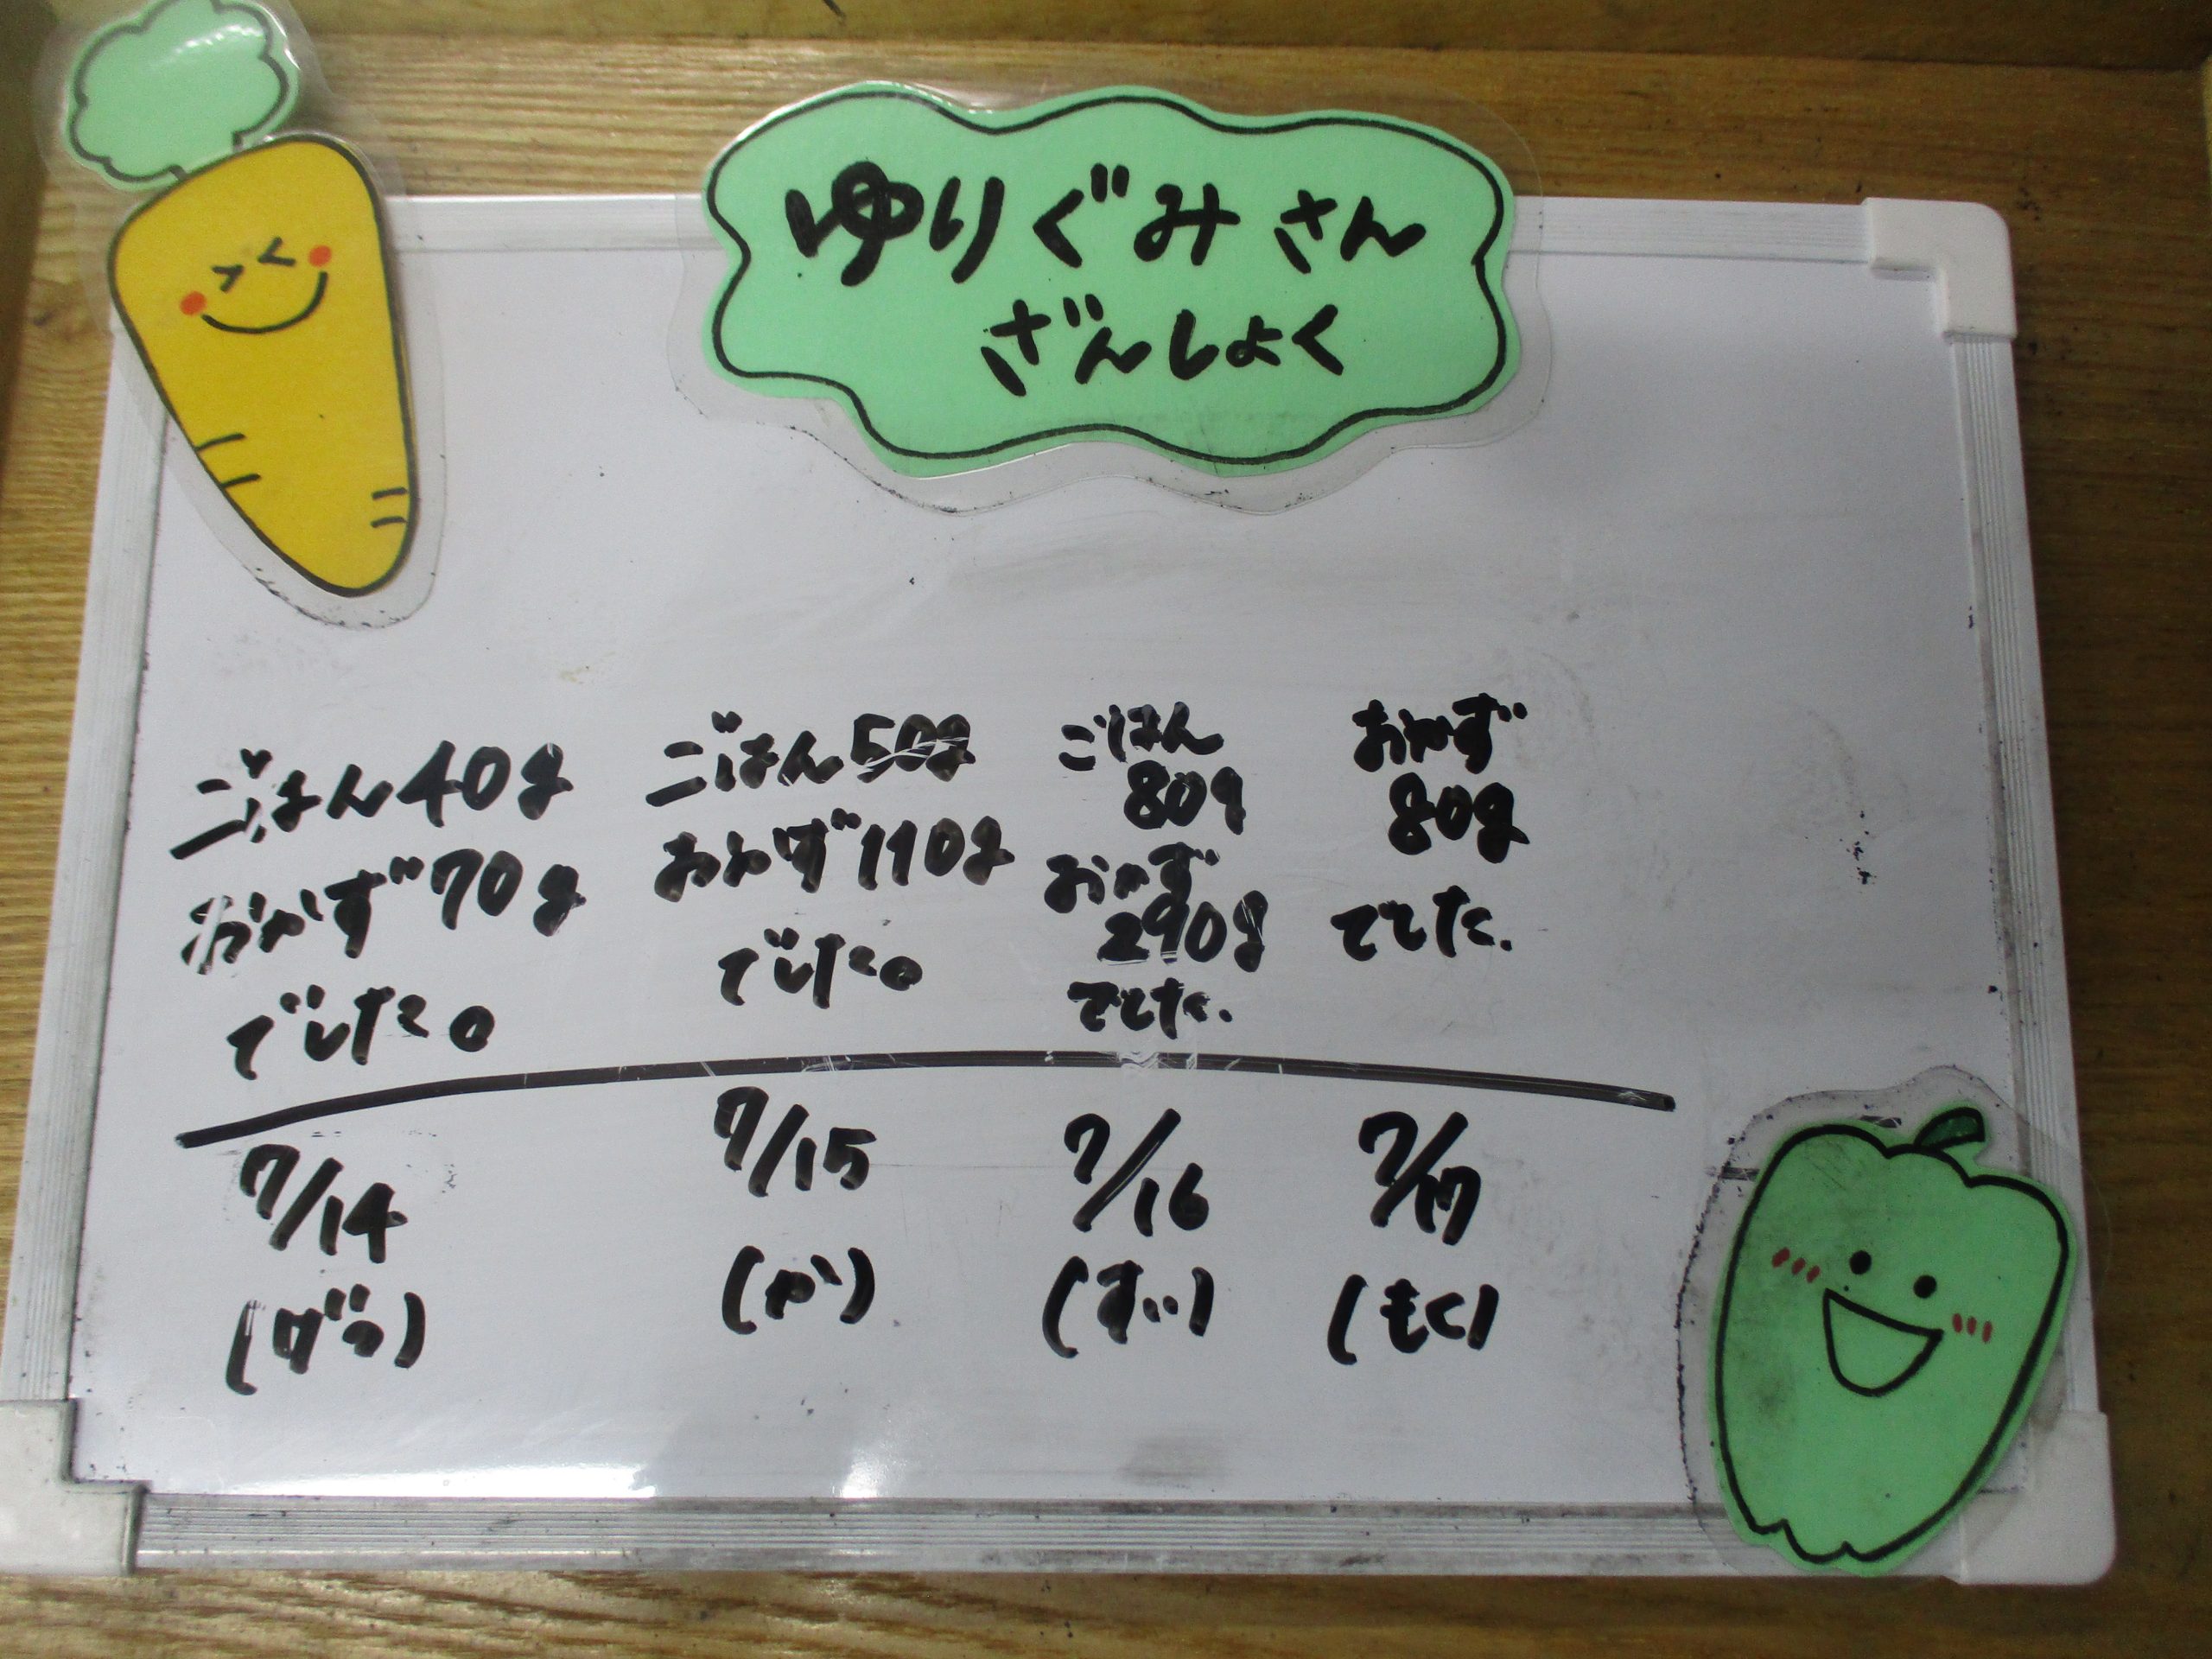 ゆりぐみさん
ざんしょく
ごはん40g
おかず70g
でした。
7/14
(げつ)
ごはん50g
おかず110g
でした。
7/15
(か)
ごはん
80g
おかず
290g
でした.
7/16
(すい)
おかず
80g
でした.
7/17
(もく)